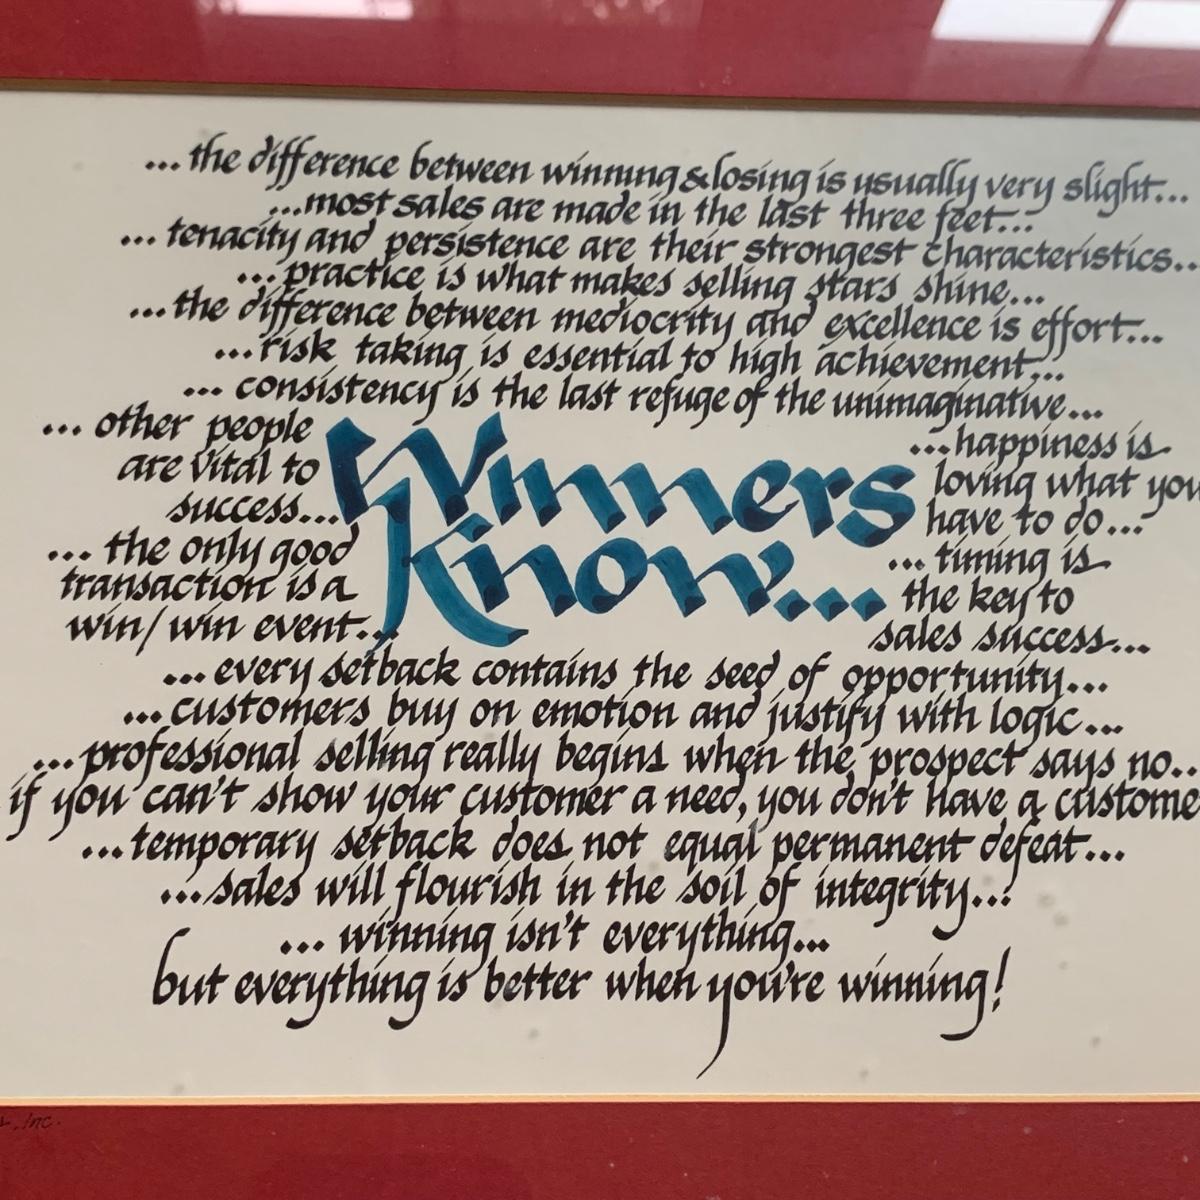 ...the difference between winning & losing is usually very slight...
...most sales are made in the last three feet...
...tenacity and persistence are their strongest characteristics..
...practice is what makes selling stars shine...
...the difference between mediocrity and excellence is effort...
...risk taking is essential to high achievement...
...consistency is the last refuge of the unimaginative...
...other people
are vital to
success...
...the only good
transaction is a
win/win event...
Winners
Know...
...happiness is
loving what you
have to do...
...timing is
the key to
sales success...
...every setback contains the seed of opportunity...
...customers buy on emotion and justify with logic...
...professional selling really begins when the prospect says no..
if you can't show your customer a need, you don't have a custome
...temporary setback does not equal permanent defeat...
...sales will flourish in the soil of integrity...
...winning isn't everything...
but everything is better when you're winning!
, Inc.